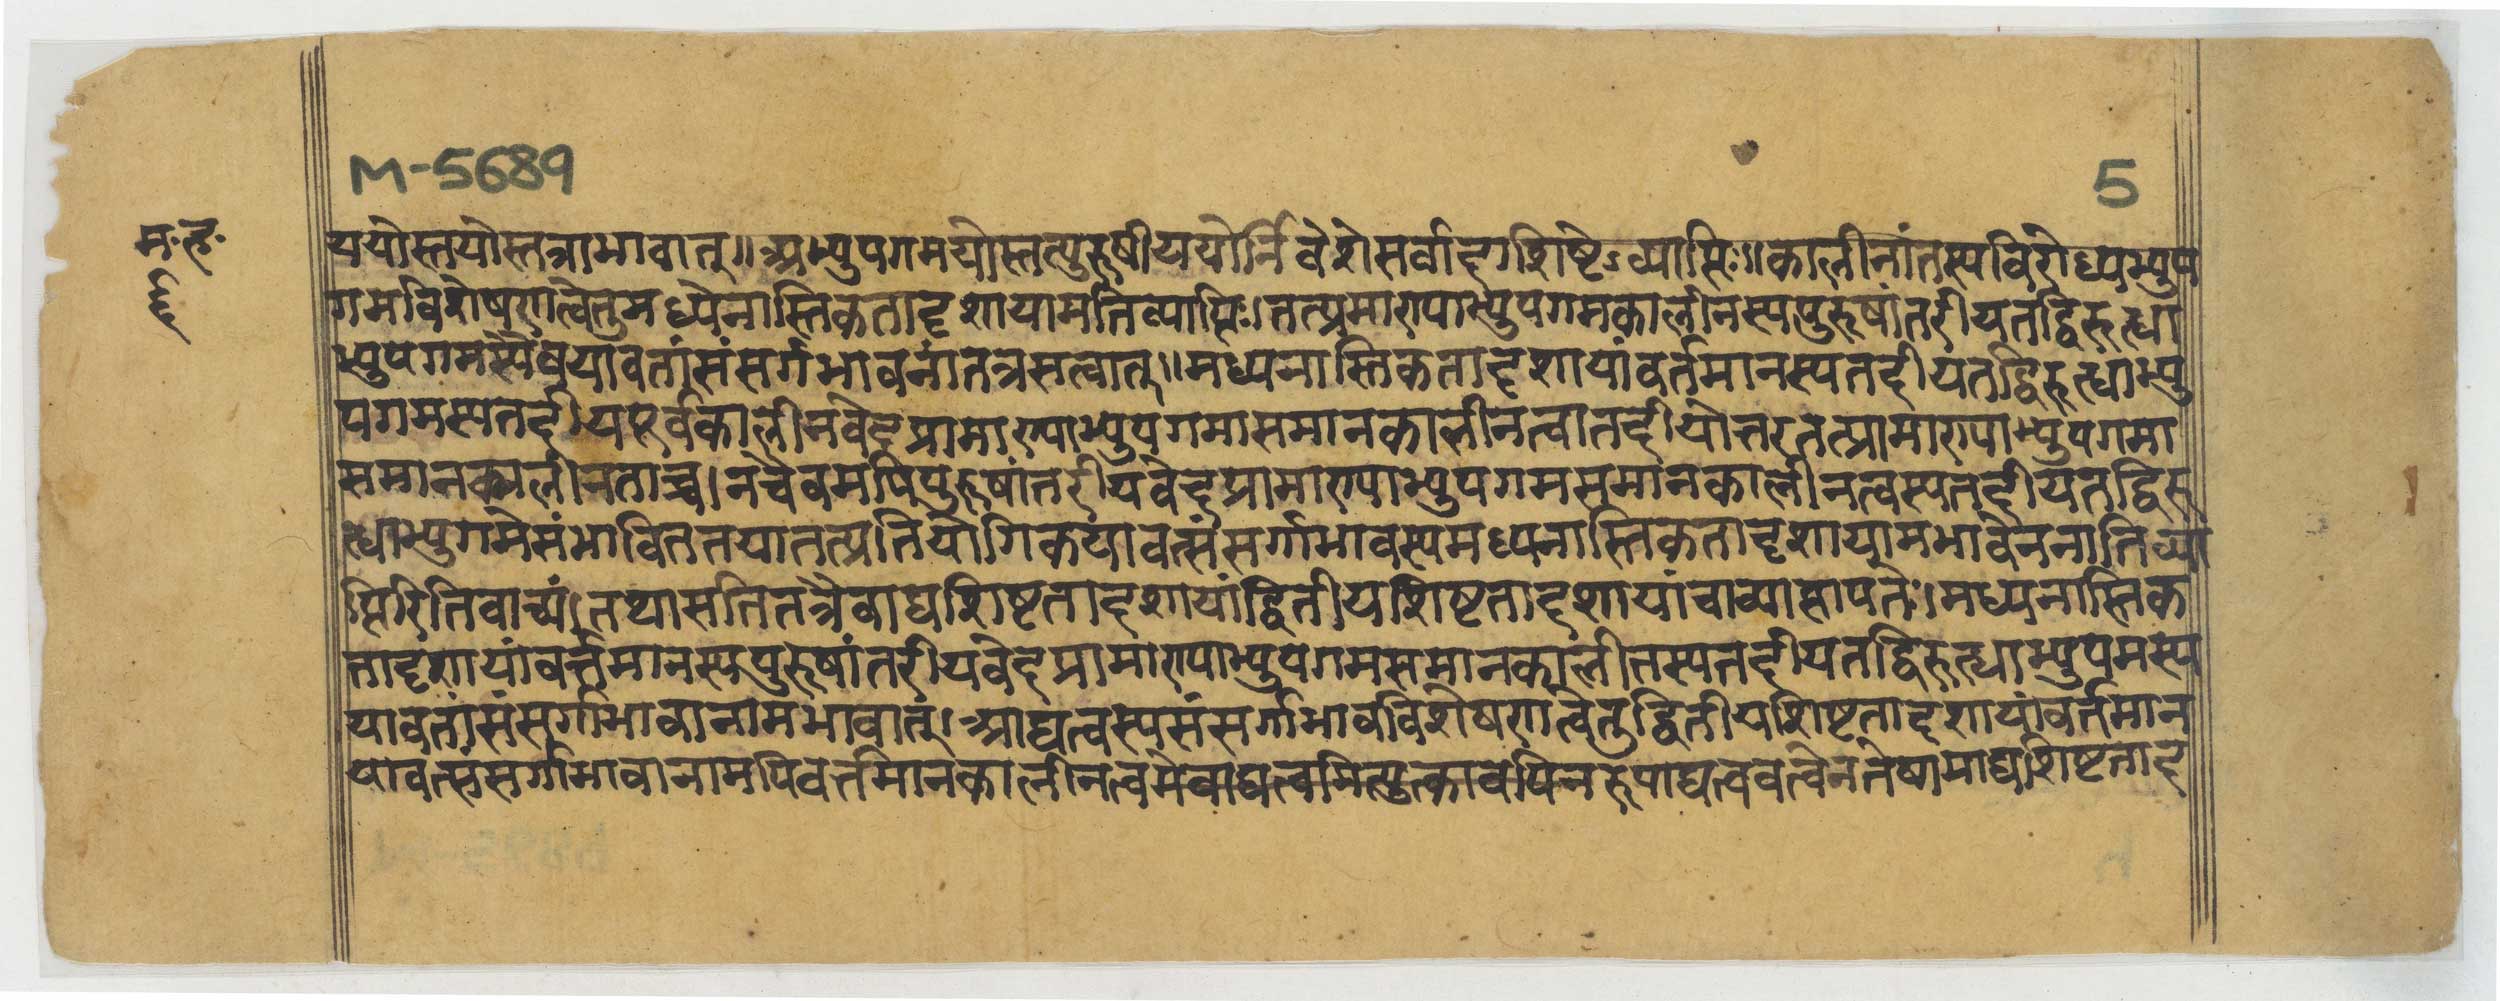 M-5689
5
म॰ल॰
ययोस्तयोस्तत्राभावात्॥अभ्युपगमयोस्तत्पुरुषीययोर्निवेशेसर्वादृगशिष्टेऽव्याप्तिः॥कालीनांतस्यविरोद्ध्यभ्युप
गमविशेषणत्वेतुमध्येनास्तिकतादृशायामतिव्याप्तिः।तत्प्रमाण्याभ्युपगमकालीनस्यपुरुषांतरीयतद्विरुद्ध्या
भ्युपगमस्यैवयावतांसंसर्गभावनांतत्रसत्वात्॥मध्यनास्तिकतादृशायांवर्तमानस्यतदीयंतद्विरुद्ध्याभ्यु
पगमस्यतदीयपूर्वकालीनवेदप्रामाण्याभ्युपगमासमानकालीनत्वातदीयोत्तरतत्प्रामाण्याभ्युपगमा
समानकालीनताच्च।नचैवमपिपुरुषांतरीयवेदप्रामाण्याभ्युपगमसमानकालीनत्वस्यतदीयतद्विरु
ध्याभ्युगमेसंभाविततयातत्प्रतियोगिकयावत्संसर्गाभावस्यमध्यनास्तिकतादृशायामभावेननातिव्या
प्तिरितिवाच्यं।तथासतितत्रैवाद्यशिष्टतादृशायांद्वितीयशिष्टतादृशायांचाव्याप्तापत्तेः।मध्यनास्तिक
तादृशायांवर्त्तमानस्यपुरुषांतरीयवेदप्रामाण्याभ्युपगमसमानकालीतस्यतदीयतद्विरुद्ध्याभ्युपमस्य
यावतांसंसर्गाभावानामभावात्।आद्यत्वस्यसंसर्गाभावविशेषणत्वेतुद्वितीयशिष्टतादृशायांवर्तमान
यावत्संसर्गाभावानामपिवर्तमानकालीनत्वमेवाद्यत्वमित्युत्कावपिनरूपाद्यत्ववत्वेनतेषामाद्यशिष्टताद